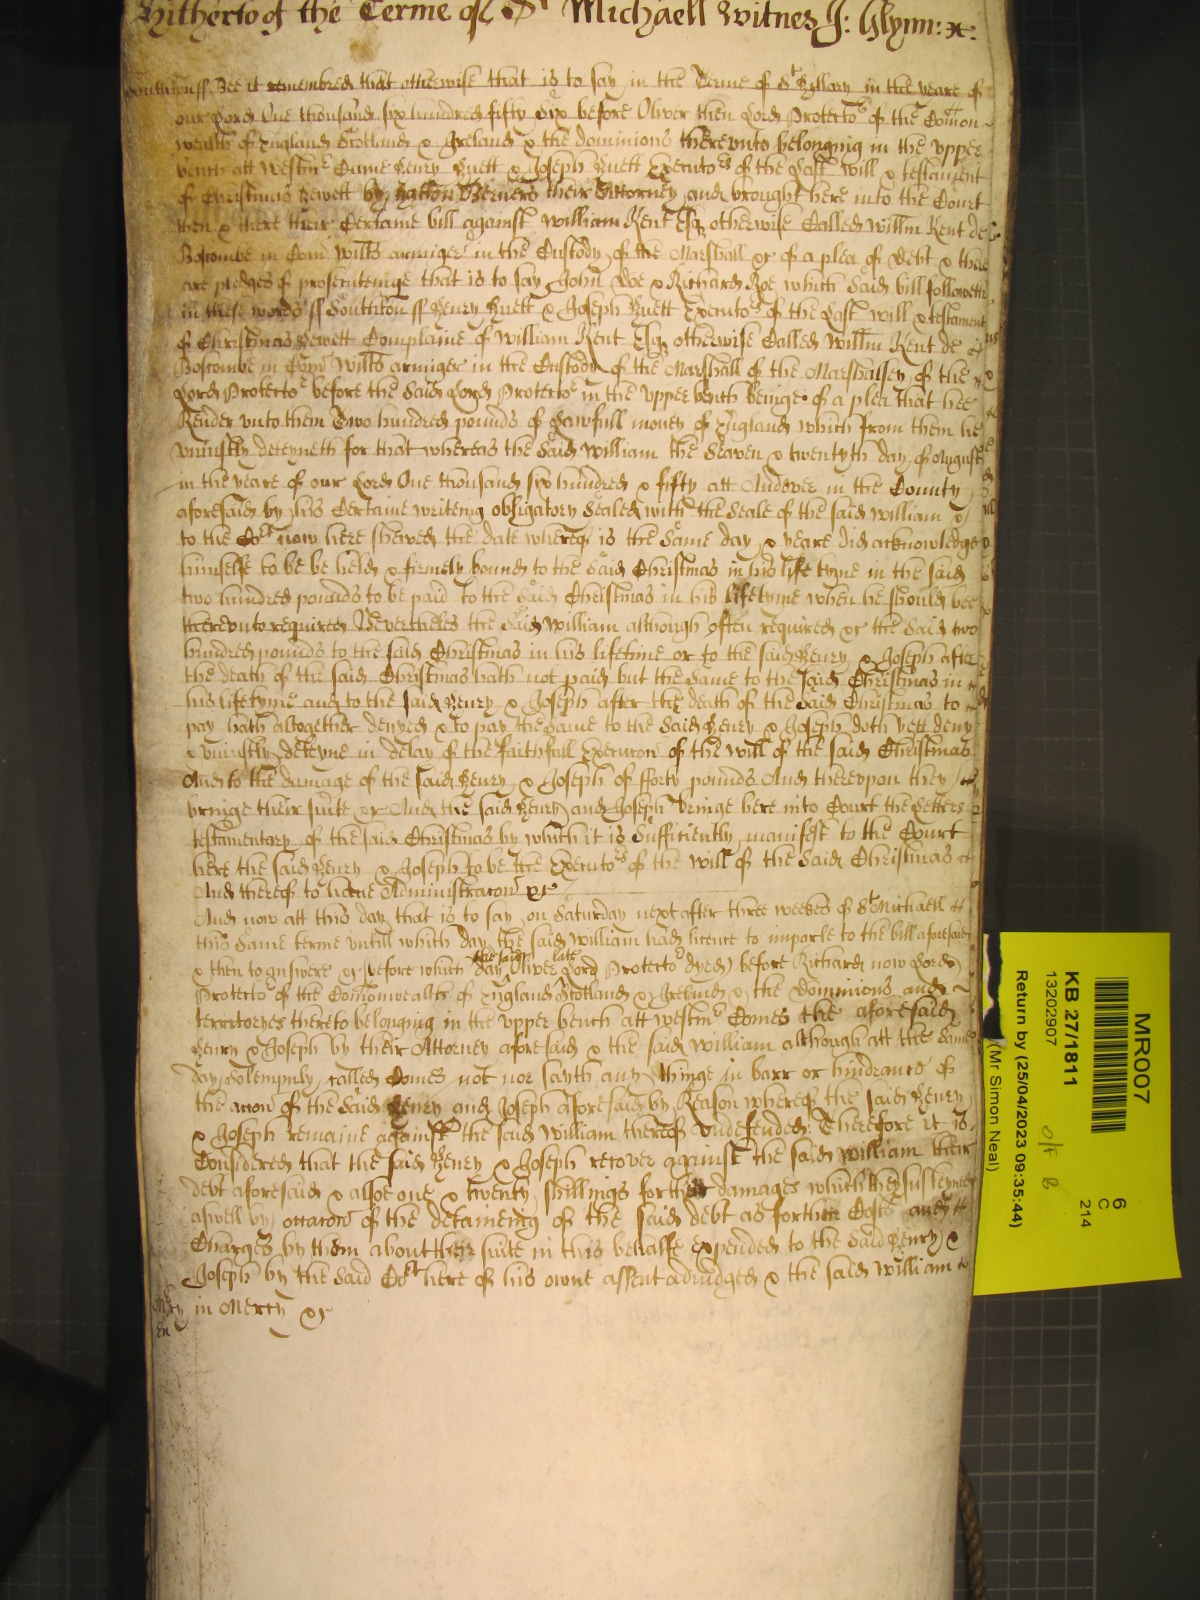 Hitherto of the Terme of St Michaell Witnes J: Glynn: x:
Southton ss Bee it remembred that otherwise that is to say in the Terme of St Hillary in the yeare of
our Lord One thousand six hundred fifty six before Oliver then Lord Protector of the Comon
wealth of England Scotland & Ireland & the dominions thereunto belonging in the upper
bench att Westmr Came Henry Huett & Joseph Huett Executors of the Last will & testament
of Christmas Hewett by their Attorney and brought here into the Court
then & there their Certaine bill against William Kent Esq otherwise Called Willm Kent de
Boscombe in Com Wilts armiger in the Custody of the Marshall &c of a plea of Debt & there
are pledges of prosecuteinge that is to say John Doe & Richard Roe which said bill followeth
in these words ss Southton ss Henry Huett & Joseph Huett Executors of the Last will & testament
of Christmas Hewett Complaine of William Kent Esq otherwise Called Willm Kent de
Boscombe in Com Wilts armiger in the Custody of the Marshall of the Marshalsey of the
Lord Protector before the said Lord Protector in the upper bench beinge of a plea that hee
Render unto them Two hundred pounds of Lawfull money of England which from them he
uniustly deteyneth for that whereas the said William the Seaven & twentyth day of August
in the yeare of our Lord One thousand six hundred & fifty att Andover in the County
aforesaid by his Certaine writeing obligatory Sealed with the Seale of the said William &
to the Cort now here shewed the date whereof is the same day & yeare did acknowledge
himselfe to be be held & firmely bound to the said Christmas in his life tyme in the said
two hundred pounds to be paid to the said Christmas in his lifetyme when he should bee
thereunto required Neverthelės the said William although often required &c the said two
hundred pounds to the said Christmas in his lifetime or to the said Henry & Joseph after
the death of the said Christmas hath not paid but the same to the said Christmas in
his lifetyme and to the said Henry & Joseph after the death of the said Christmas to
pay hath altogether denyed & to pay the same to the said Henry & Joseph doth yett deny
& uniustly deteyne in delay of the faithfull Execucon of the will of the said Christmas
And to the damage of the said Henry & Joseph of fforty pounds And thereupon they
bringe their suite &c And the said Henry and Joseph bringe here into Court the Letters
testamentary of the said Christmas by which it is sufficiently manifest to the Court
here the said Henry & Joseph to be the Executors of the will of the said Christmas
And thereof to have Administracon &c
And now att this day that is to say on Saturday next after three weekes of St Michaell
this same terme untill which day the said William had licence to imparle to the bill aforesaid
the said late
& then to answere &c (before which day Oliver Lord Protector dyed) before Richard now Lord
Protector of the Comonwealth of England Scotland & Ireland & the Dominions and
territoryes thereto belonging in the upper bench att Westmr Comes the aforesaid
Henry & Joseph by their Attorney aforesaid & the said William although att the same
day Solempnly called Comes not nor sayth any thinge in barr or hindrance of
the accon of the said Henry and Joseph aforesaid by Reason whereof the said Henry
& Joseph remaine against the said William thereof undefended. Therefore it is
Considered that the said Henry & Joseph recover against the said William their
debt aforesaid & alsoe one & twenty shillings for their damages which they susteyned
aswell by occacon of the detaineing of the said debt as for their Costs and
Charges by them about their suite in this behalfe expended to the said Henry &
Joseph by the said Cort here of his owne assent adiudged & the said William
in Mercy &c
MR007
KB 27/1811
13202907
Return by (25/04/2023 09:35:44)
(Mr Simon Neal)
6
C
214